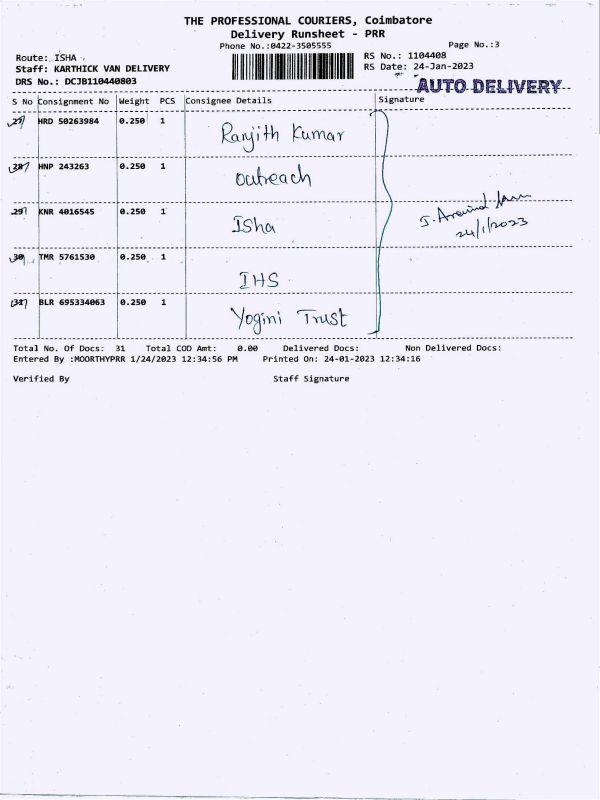 THE PROFESSIONAL COURIERS, Coimbatore
Delivery Runsheet - PRR
Phone No.:0422-3505555
Page No.:3
Route: ISHA
RS No.: 1104408
Staff: KARTHICK VAN DELIVERY
RS Date: 24-Jan-2023
DRS No.: DCJB110440803
AUTO DELIVERY
S No Consignment No Weight PCS Consignee Details Signature
27 HRD 50263984 0.250 1 Ranjith Kumar
28 HNP 243263 0.250 1 outreach
29 KNR 4016545 0.250 1 ISha
24/1/2023
30 TMR 5761530 0.250 1 IHS
31 BLR 695334063 0.250 1 Yogini Trust
Total No. Of Docs: 31 Total COD Amt: 0.00 Delivered Docs: Non Delivered Docs:
Entered By :MOORTHYPRR 1/24/2023 12:34:56 PM Printed On: 24-01-2023 12:34:16
Verified By Staff Signature